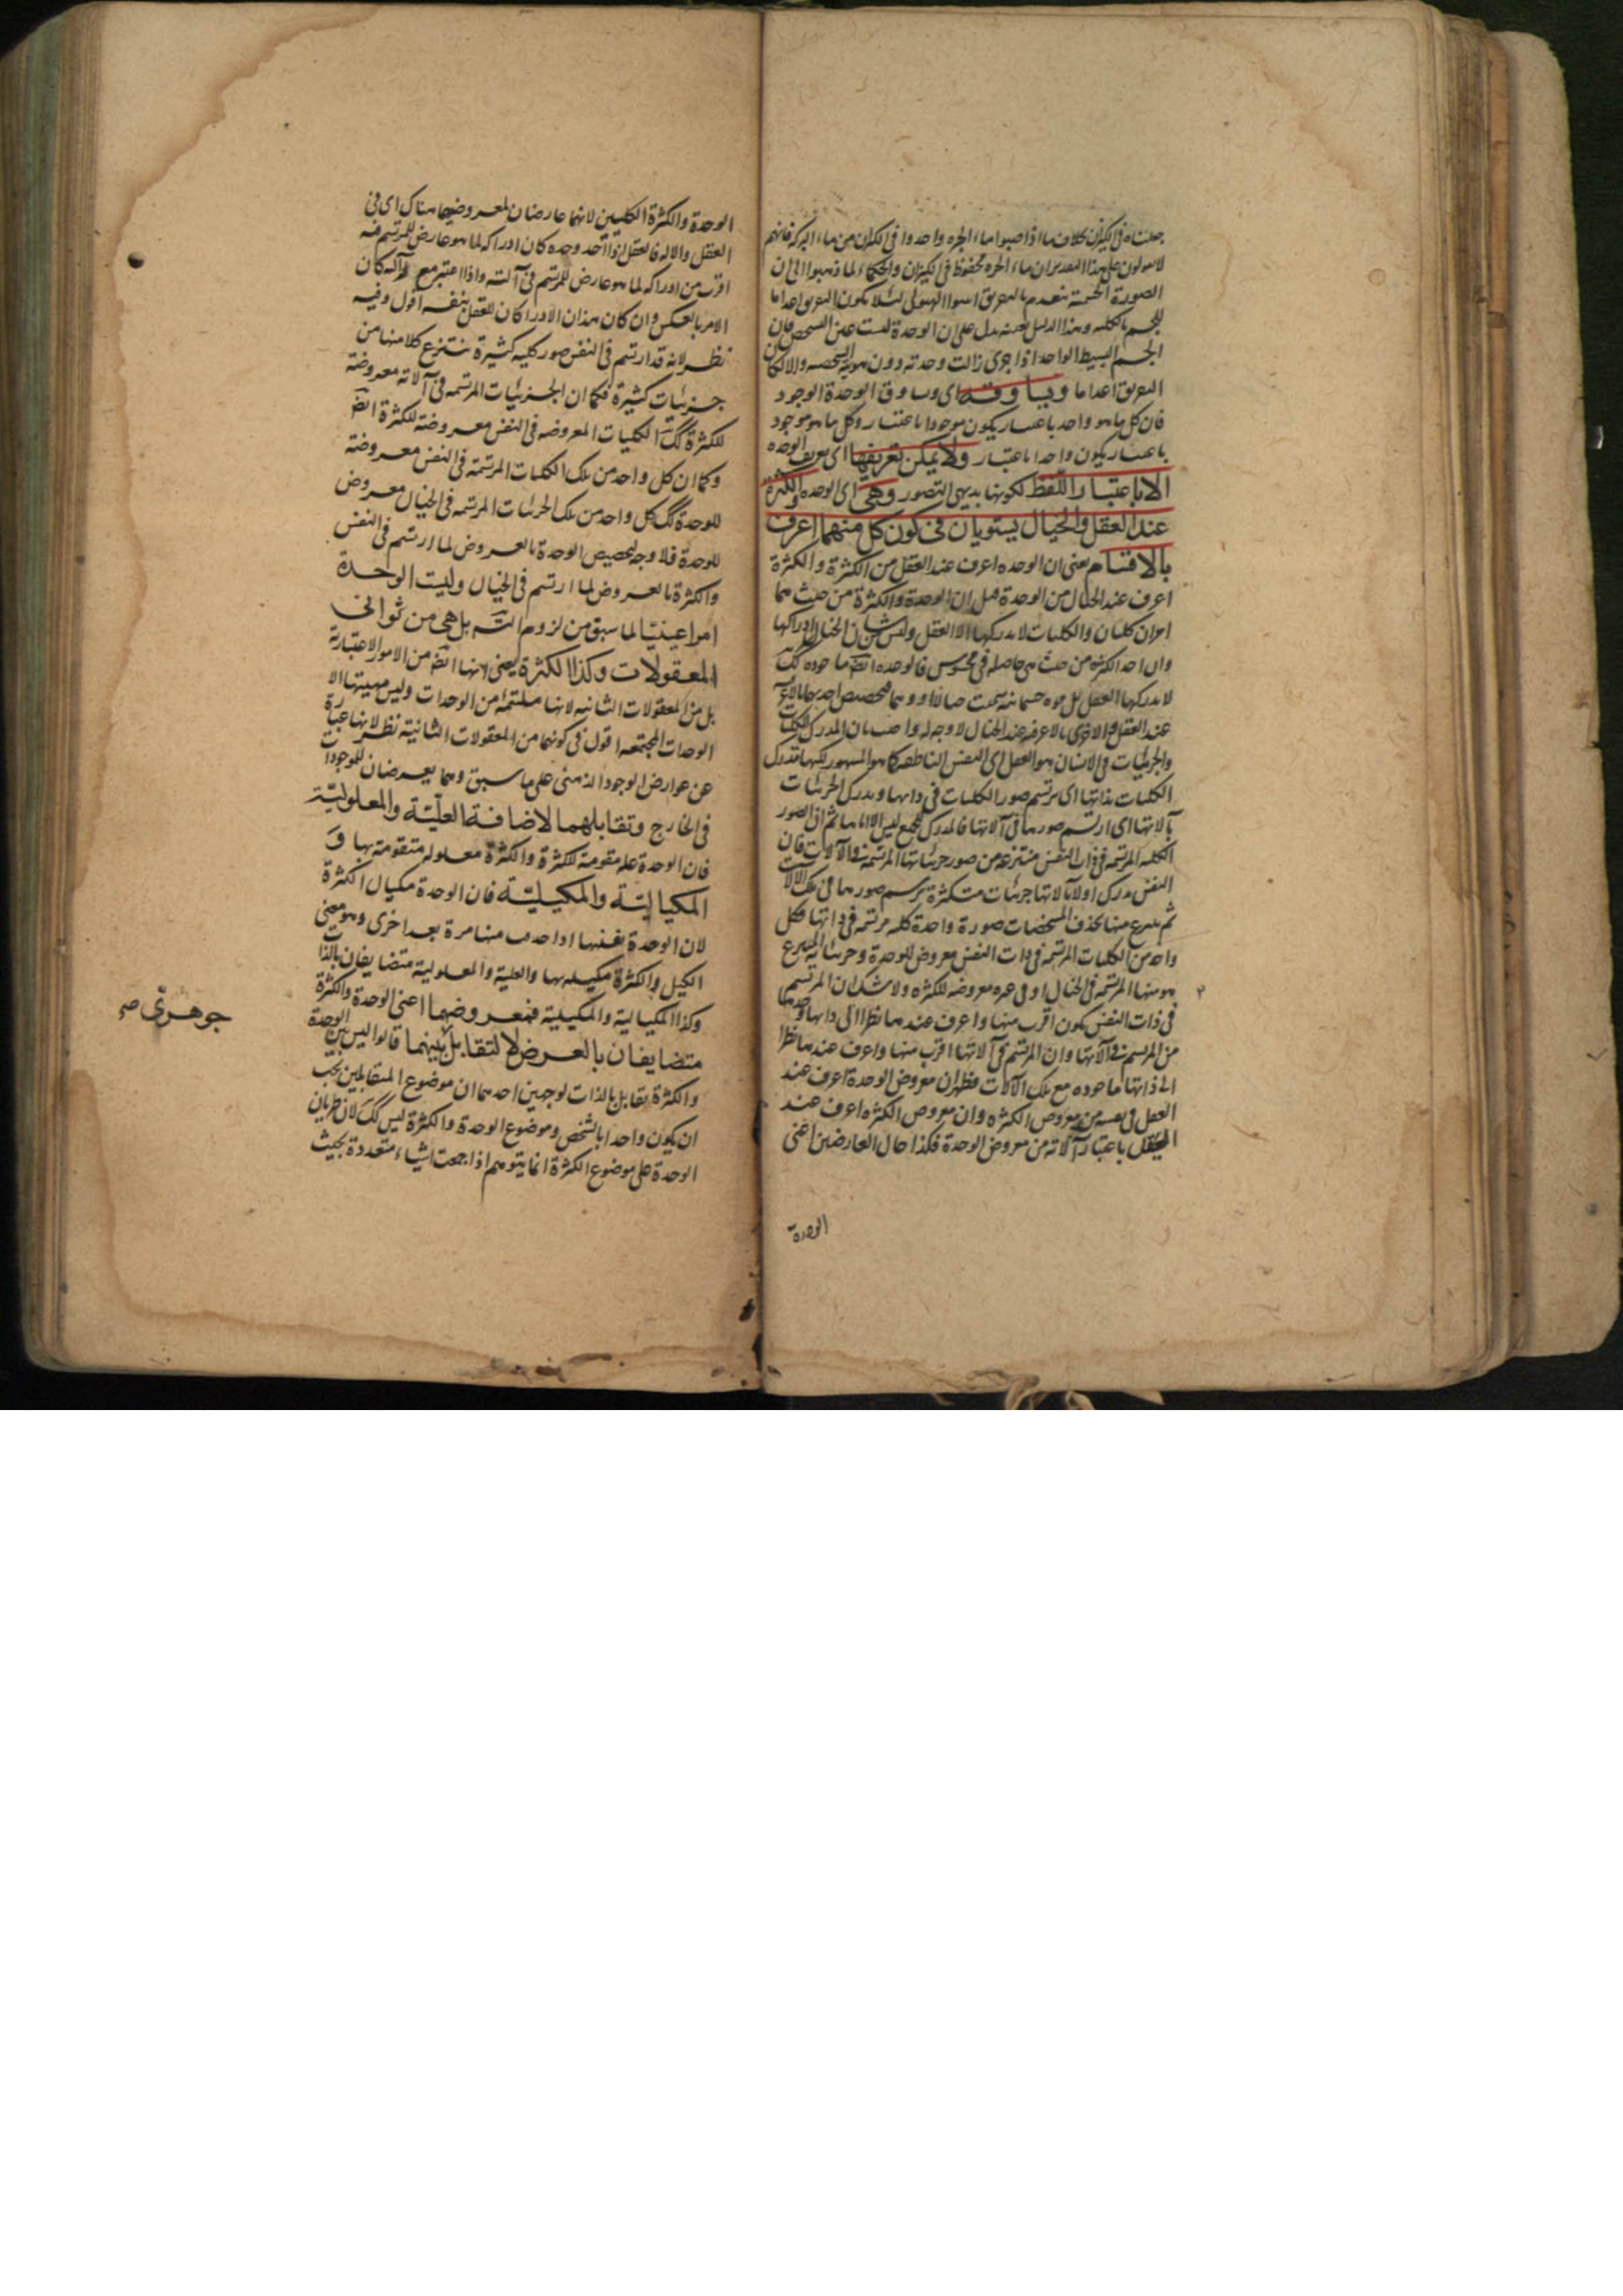 جعلناه فى الكيزان بخلاف ما اذا صبوا ماء الجره واحدوا فى الكيزان من ماء البركه فانهم
لا يقولون على هذا التقدير ان ماء الجره محفوظ فى الكيزان والحكماء لما ذهبوا الى ان
الصورة الجسمية تنعدم بالتفريق اثبتوا الهيولى لئلا يكون التفريق اعداما
للجسم بالكليه وهذا الدليل بعينه يدل على ان الوحدة ليست عين التشخص فان
الجسم البسيط الواحد اذا جزى زالت وحدته دون هويته الشخصيه والا لكان
التفريق اعداما وتساوقه اى وتساوق الوحدة الوجود
فان كل ما هو واحد باعتبار يكون موجودا باعتبار وكل ما هو موجود
باعتبار يكون واحدا باعتبار ولا يمكن تعريفها اى تعريف الوحده
الا باعتبار اللفظ لكونها بديهى التصور وهى اى الوحده والكثرة
عند العقل والخيال يستويان فى كون كل منهما اعرف
بالاقتسام يعنى ان الوحده اعرف عند العقل من الكثرة والكثرة
اعرف عند الخيال من الوحدة قيل ان الوحدة والكثرة من حيث هما
امران كليان والكليات لا يدركها الا العقل وليس من شان الخيال ادراكها
وان اخذ الكثره من حيث هى حاصله فى محسوس فالوحده ايضا ماخوذه كك
لا يدركها العقل بل قوه جسمانيه سميت خيالا او وهما فتخصيص احديهما بالاعرفيه
عند العقل والاخرى بالاعرفيه عند الخيال لا وجه له واجيب بان المدرك للكليات
والجزئيات فى الانسان هو العقل اى النفس الناطقه كما هو المشهور لكنها تدرك
الكليات بذاتها اى يرتسم صور الكليات فى ذاتها ويدرك الجزئيات
بآلاتها اى ارتسم صورها فى آلاتها فالمدرك للجميع ليس الا اياها ثم ان الصور
الكليه المرتسمه فى ذات النفس منتزعه من صور جزئياتها المرتسمه فى الآلات فان
النفس يدرك اولا بآلاتها جزئيات متكثرة يرتسم صورها فى تلك الآلات
ثم ينتزع منها بحذف المشخصات صورة واحدة كليه مرتسمه فى ذاتها فكل
واحد من الكليات المرتسمه فى ذات النفس معروض للوحدة وجزئياته المنتزع
هو منها المرتسمه فى الخيال او فى غيره معروضه للكثره ولا شك ان المرتسم
فى ذات النفس يكون اقرب منها واعرف عندها نظرا الى ذاتها وحدها
من المرتسم فى آلاتها وان المرتسم فى آلاتها اقرب منها واعرف عندها نظرا
الى ذاتها ماخوذه مع تلك الآلات فظهر ان معروض الوحدة اعرف عند
العقل فى نفسه من معروض الكثره وان معروض الكثره اعرف عند
العقل باعتبار آلاته من معروض الوحدة فكذا حال العارضين اعنى
الوحدة
الوحدة والكثرة الكليين لانهما عارضان لمعروضيهما هناك اى فى
العقل والاله فالعقل اذا اخذ وحده كان ادراكه لما هو عارض للمرتسم فيه
اقرب من ادراكه لما هو عارض للمرتسم فى آلته واذا اعتبر مع آلته كان
الامر بالعكس وان كان هذان الادراكان للعقل بنفسه اقول وفيه
نظر لانه قد ارتسم فى النفس صور كليه كثيرة ينتزع كلا منها من
جزئيات كثيرة فكما ان الجزئيات المرتسمه فى آلاته معروضة
للكثرة كك الكليات المعروضه فى النفس معروضة للكثرة ايضا
وكما ان كل واحد من تلك الكليات المرتسمة فى النفس معروضة
للوحدة كك كل واحد من تلك الجزئيات المرتسمه فى الخيال معروض
للوحدة فلا وجه لتخصيص الوحدة بالعروض لما ارتسم فى النفس
والكثرة بالعروض لما ارتسم فى الخيال وليست الوحدة
امرا عينيا لما سبق من لزوم التسم بل هى من ثوانى
المعقولات وكذا الكثرة يعنى انها ايضا من الامور الاعتبارية
بل من المعقولات الثانيه لانها ملتئمة من الوحدات وليس مهيتها الا
الوحدات المجتمعه اقول فى كونهما من المعقولات الثانية نظر لانها عبارة
عن عوارض الوجود الذهنى على ما سبق وهما يعرضان للموجودات
فى الخارج وتقابلهما لاضافة العلية والمعلولية
فان الوحدة عله مقومة للكثرة والكثرة معلوله متقومة بها و
المكيالية والمكيلية فان الوحدة مكيال الكثرة
لان الوحدة تفنيها اذا حذف منها مرة بعد اخرى وهو معنى
الكيل والكثرة مكيله بها والعلية والمعلولية متضايفان بالذات
وكذا المكيالية والمكيلية فمعروضهما اعنى الوحدة والكثرة
متضايفان بالعرض لا لتقابل بينهما قالوا ليس بين الوحدة
والكثرة تقابل بالذات لوجهين احدهما ان موضوع المتقابلين يجب
ان يكون واحدا بالشخص وموضوع الوحدة والكثرة ليس كك لان طريان
الوحدة على موضوع الكثرة انما يتوهم اذا جمعت اشياء متعددة بحيث
جوهرى صح